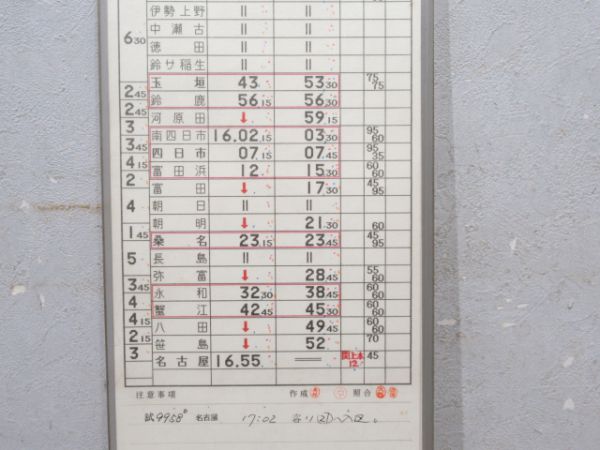 伊勢上野 〃 〃
中瀬古 〃 〃
6 30 徳田 〃 〃
鈴サ稲生 〃 〃
玉垣 43 53 30 75 75
2 45 鈴鹿 56 15 56 30
2 45 河原田 ↓ 59 15
3 南四日市 16.02 15 03 30 95 60
3 45 四日市 07 15 07 45 95 35
4 15 富田浜 12 15 30 60 60
2 富田 ↓ 17 30 45 95
4 朝日 〃 〃
朝明 ↓ 21 30 60
1 45 桑名 23 15 23 45 45 95
5 長島 〃 〃
弥富 ↓ 28 45 55 60
3 45 永和 32 30 38 45 60 60
4 蟹江 42 45 45 30 60 60
4 15 八田 ↓ 49 45 60 60
2 15 笹島 ↓ 52 70
3 名古屋 16.55 = 12 45
注意事項 作成 照合
試9958 名古屋 17:02